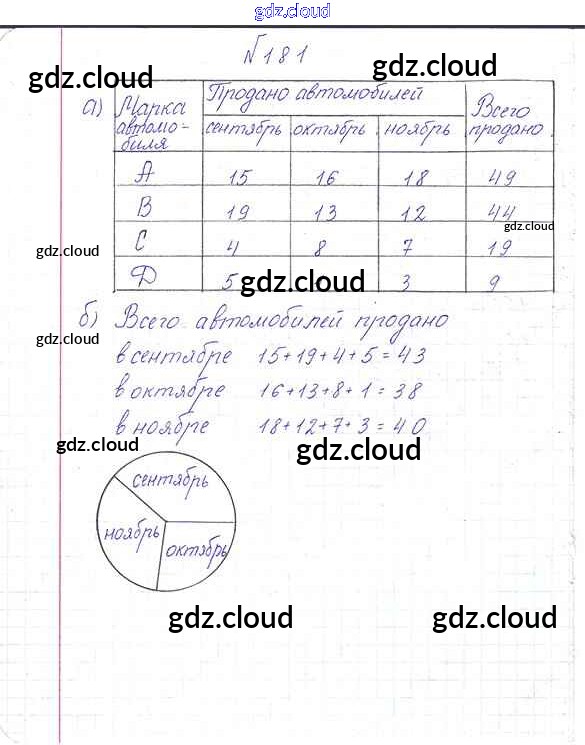 gdz.cloud
№181
gdz.cloud gdz.cloud
а) Марка автомо-биля Продано автомобилей Всего продано
сентябрь октябрь ноябрь
A 15 16 18 49
B 19 13 12 44
gdz.cloud
C 4 8 7 19
gdz.cloud
D 5 3 9
gdz.cloud
б) Всего автомобилей продано
gdz.cloud
в сентябре 15+19+4+5=43
в октябре 16+13+8+1=38
в ноябре 18+12+7+3=40
gdz.cloud gdz.cloud
сентябрь
ноябрь октябрь
gdz.cloud gdz.cloud